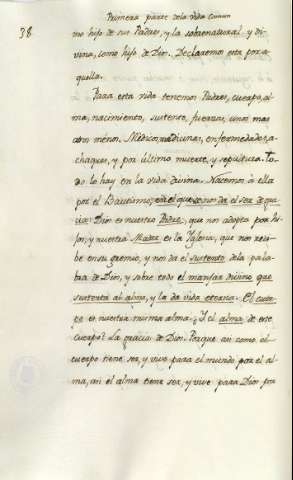 Primera parte de la vida comun
38
mo hijo de sus Padres, y la sobrenatural y di-
vina, como hijo de Dios. Declaremos esta por a-
quella.
Para esta vida tenemos Padres, cuerpo, al-
ma, nacimiento, sustento, fuerzas, unos mas
otros menos. Medico, medicinas, enfermedades, a-
chaques, y por ultimo muerte, y sepultura. To-
do lo hay en la vida divina. Nacemos à ella
por el Bautismo, en el que se nos da el ser de gra-
cia: Dios es nuestro Padre, que nos adopta por hi-
jos, y nuestra Madre es la Yglesia, que nos reci-
be en su gremio, y nos da el sustento de la pala-
bra de Dios, y sobre todo el manjar divino que
sustenta al alma, y la da vida eterna. El cuer-
po es nuestra misma alma. Y el alma de este
cuerpo? La gracia de Dios. Porque asi como el
cuerpo tiene ser, y vive para el mundo por el al-
ma, asi el alma tiene ser, y vive para Dios por